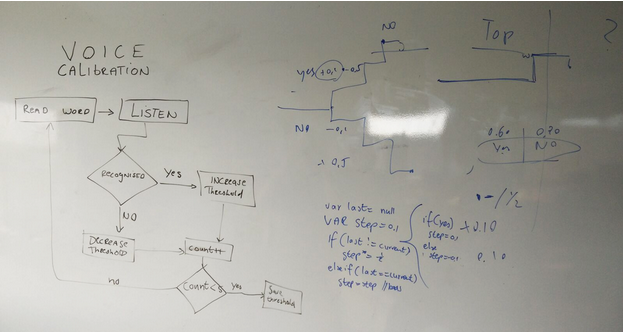 VOICE
CALIBRATION
READ WORD
LISTEN
RECOGNISED
YES
INCREASE
Threshold
NO
DECREASE
Threshold
count++
no
Count<5
yes
Save
threshold
NO
yes +0,1
NO -0,1
0,5
Top
?
0.60 0,70
Yes NO
1/2
var last= null
VAR step=0,1
if (last != current)
step*=
else if (last==current)
step=step
if(yes) +0.10
step=0,1
else
step=-0,1
0.10